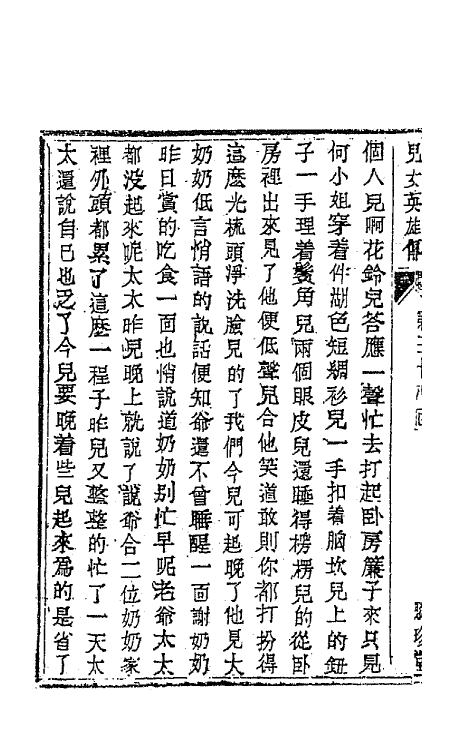 兒女英雄傳
個人兒啊花鈴兒答應一聲忙去打起卧房簾子來只見
何小姐穿着件湖色短綢衫兒一手扣着胸坎兒上的鈕
子一手理着鬢角兒兩個眼皮兒還睡得楞楞兒的從卧
房裡出來見了他便低聲兒合他笑道敢則你都打扮得
這麽光梳頭淨洗臉兒的了我們今兒可起晚了他見大
奶奶低言悄語的說話便知爺還不曾睡醒一面謝奶奶
昨日賞的吃食一面也悄說道奶奶别忙早呢老爺太太
都没起來呢太太昨兒晚上就說了說爺合二位奶奶家
裡外頭都累了這麽一程子昨兒又整整的忙了一天太
太還說自已也乏了今兒要晚着些兒起來爲的是省了